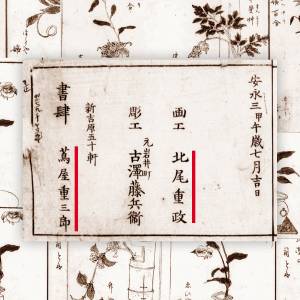 安永三甲午歳七月吉日
画工 北尾重政
彫工 元岩井町 古澤藤兵衛
新吉原五十軒
書肆 蔦屋重三郎